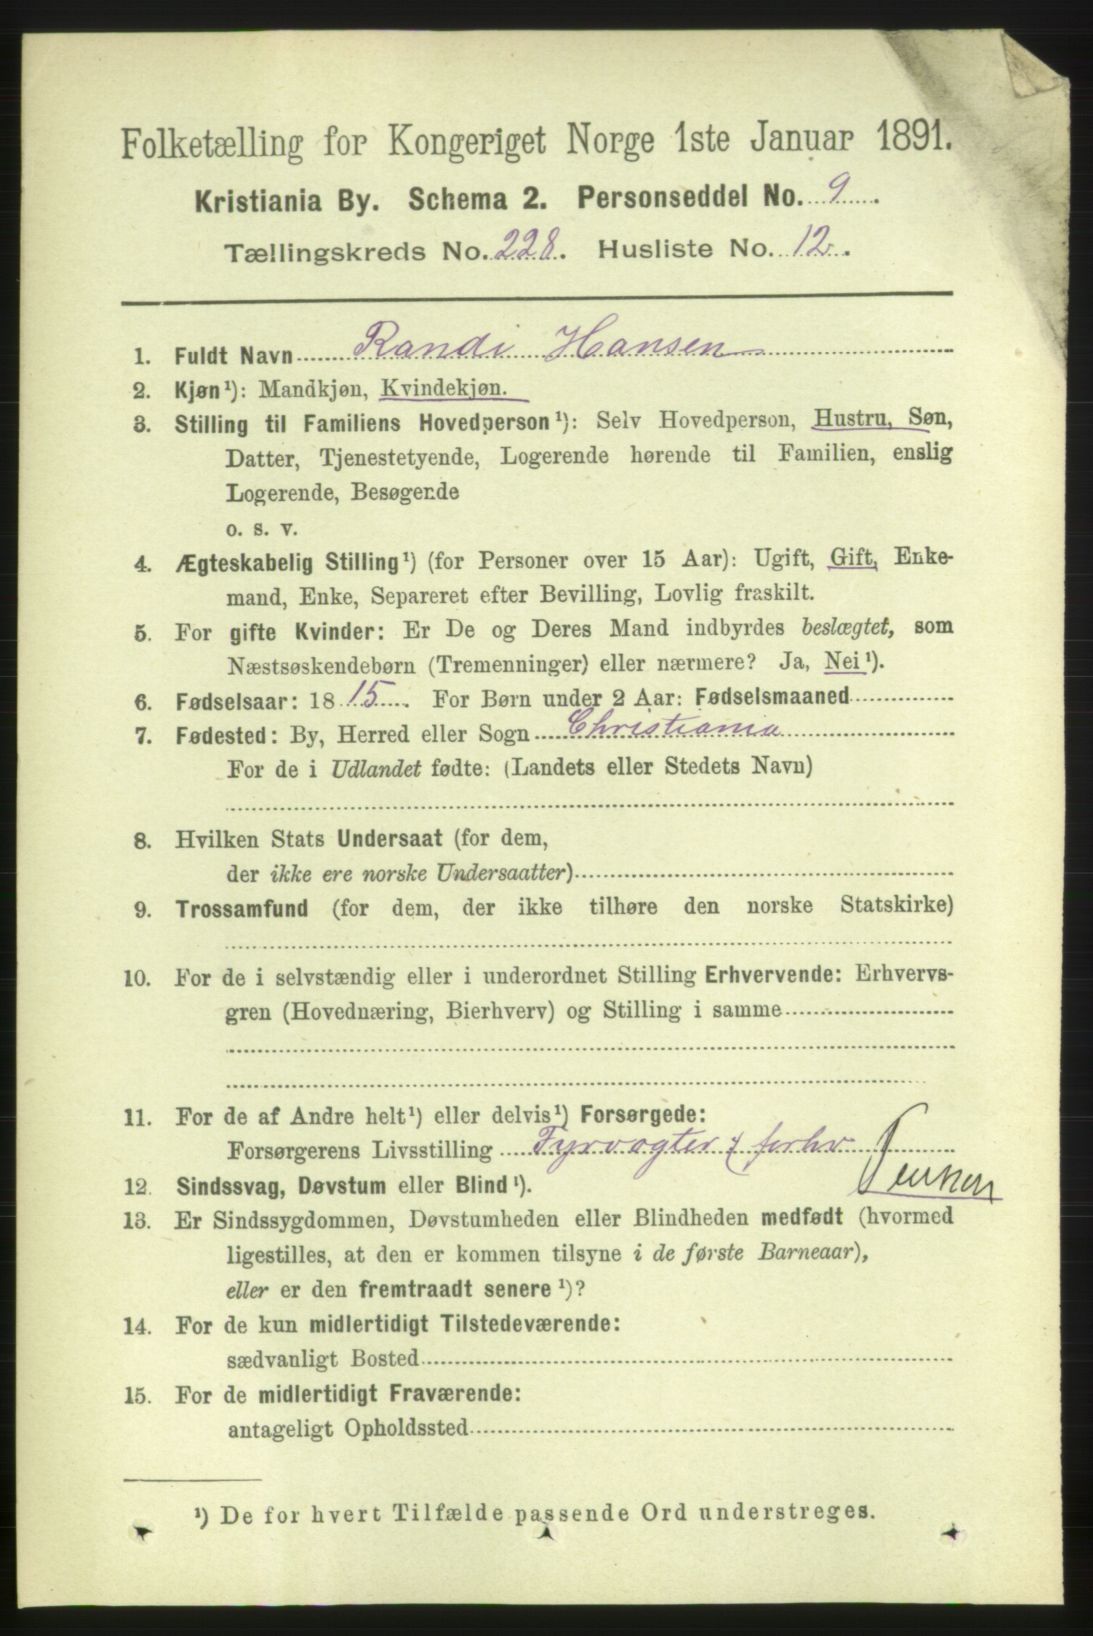 Folketælling for Kongeriget Norge 1ste Januar 1891.
Kristiania By. Schema 2. Personseddel No. 9.
Tællingskreds No. 228. Husliste No. 12.
1. Fuldt Navn Randi Hansen
2. Kjøn ¹): Mandkjøn, Kvindekjøn.
3. Stilling til Familiens Hovedperson ¹): Selv Hovedperson, Hustru, Søn,
Datter, Tjenestetyende, Logerende hørende til Familien, enslig
Logerende, Besøgende
o. s. v.
4. Ægteskabelig Stilling ¹) (for Personer over 15 Aar): Ugift, Gift, Enke-
mand, Enke, Separeret efter Bevilling, Lovlig fraskilt.
5. For gifte Kvinder: Er De og Deres Mand indbyrdes beslægtet, som
Næstsøskendebørn (Tremenninger) eller nærmere? Ja, Nei ¹).
6. Fødselsaar: 1815. For Børn under 2 Aar: Fødselsmaaned
7. Fødested: By, Herred eller Sogn Christiania
For de i Udlandet fødte: (Landets eller Stedets Navn)
8. Hvilken Stats Undersaat (for dem,
der ikke ere norske Undersaatter)
9. Trossamfund (for dem, der ikke tilhøre den norske Statskirke)
10. For de i selvstændig eller i underordnet Stilling Erhvervende: Erhvervs-
gren (Hovednæring, Bierhverv) og Stilling i samme
11. For de af Andre helt ¹) eller delvis ¹) Forsørgede:
Forsørgerens Livsstilling Fyrvogter forhv
12. Sindssvag, Døvstum eller Blind ¹).
13. Er Sindssygdommen, Døvstumheden eller Blindheden medfødt (hvormed
ligestilles, at den er kommen tilsyne i de første Barneaar),
eller er den fremtraadt senere ¹)?
14. For de kun midlertidigt Tilstedeværende:
sædvanligt Bosted
15. For de midlertidigt Fraværende:
antageligt Opholdssted
¹) De for hvert Tilfælde passende Ord understreges.